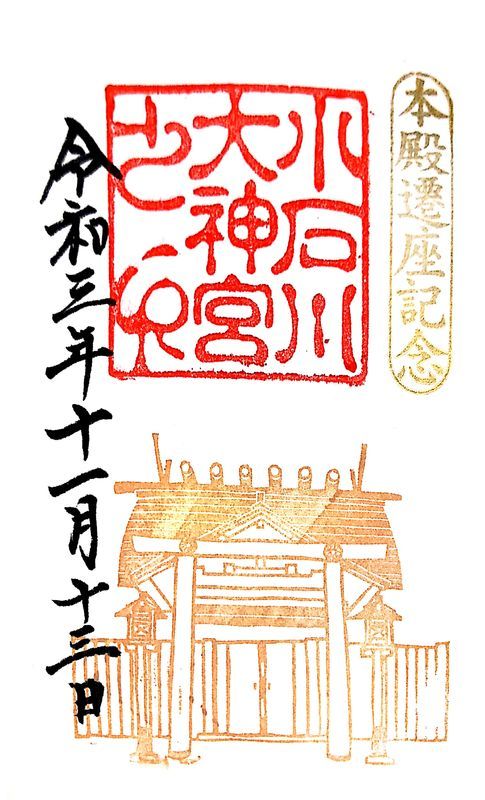 本殿遷座記念
小石川
大神宮
之印
令和三年十一月十三日